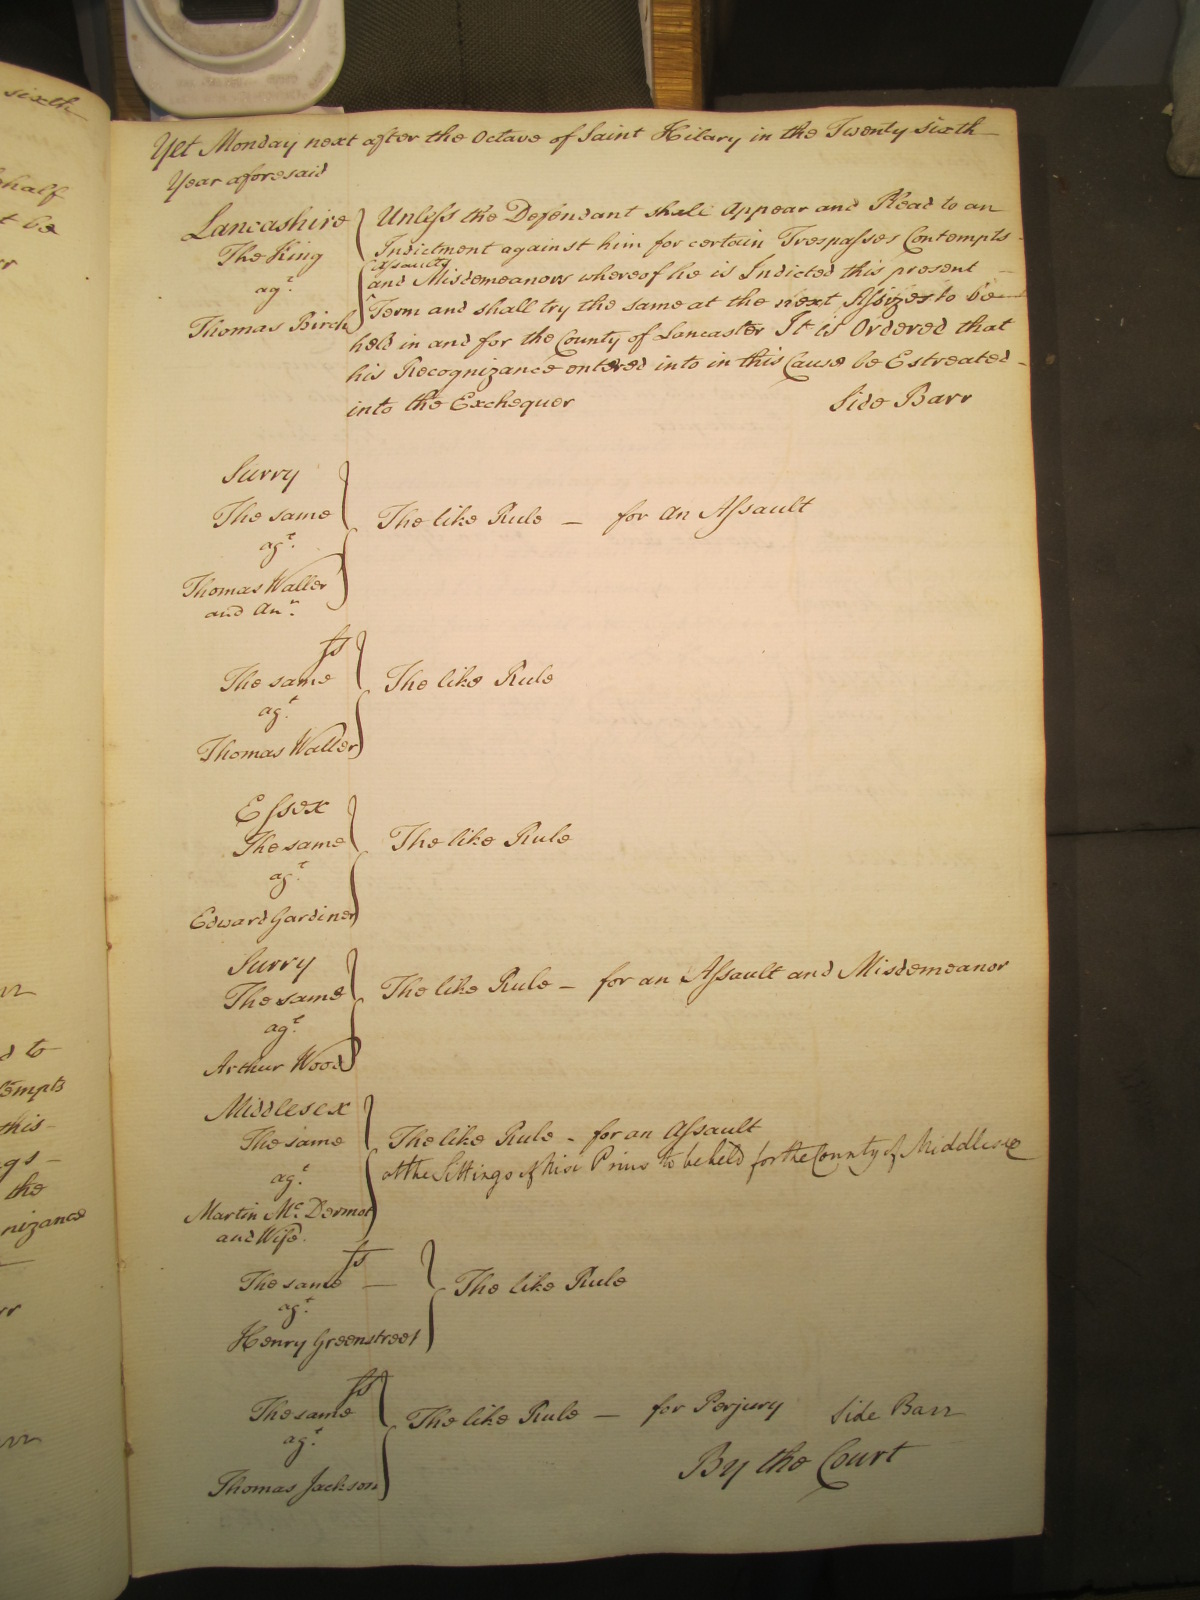 sixth
half
t be
Yet Monday next after the Octave of Saint Hilary in the Twenty sixth
Year aforesaid
Lancashire
The King
agt.
Thomas Birch
Unless the Defendant shall Appear and Plead to an
Indictment against him for certain Trespasses Contempts
Assaults
and Misdemeanors whereof he is Indicted this present
Term and shall try the same at the next Assizes to be
held in and for the County of Lancaster It is Ordered that
his Recognizance entered into in this Cause be Estreated
into the Exchequer Side Barr
Surry
The same
agt.
Thomas Waller
and Anr.
The like Rule — for an Assault
ss
The same
agt.
Thomas Waller
The like Rule
Essex
The same
agt.
Edward Gardiner
The like Rule
Surry
The same
agt.
Arthur Wood
The like Rule — for an Assault and Misdemeanor
Middlesex
The same
agt.
Martin Mc. Dermot
and Wife.
The like Rule - for an Assault
at the Sittings of Nisi Prius to be held for the County of Middlesex
ss
The same —
agt.
Henry Greenstreet
The like Rule
ss
The same
agt.
Thomas Jackson
The like Rule — for Perjury Side Barr
By the Court
d to
tempts
this
gs
the
nizance